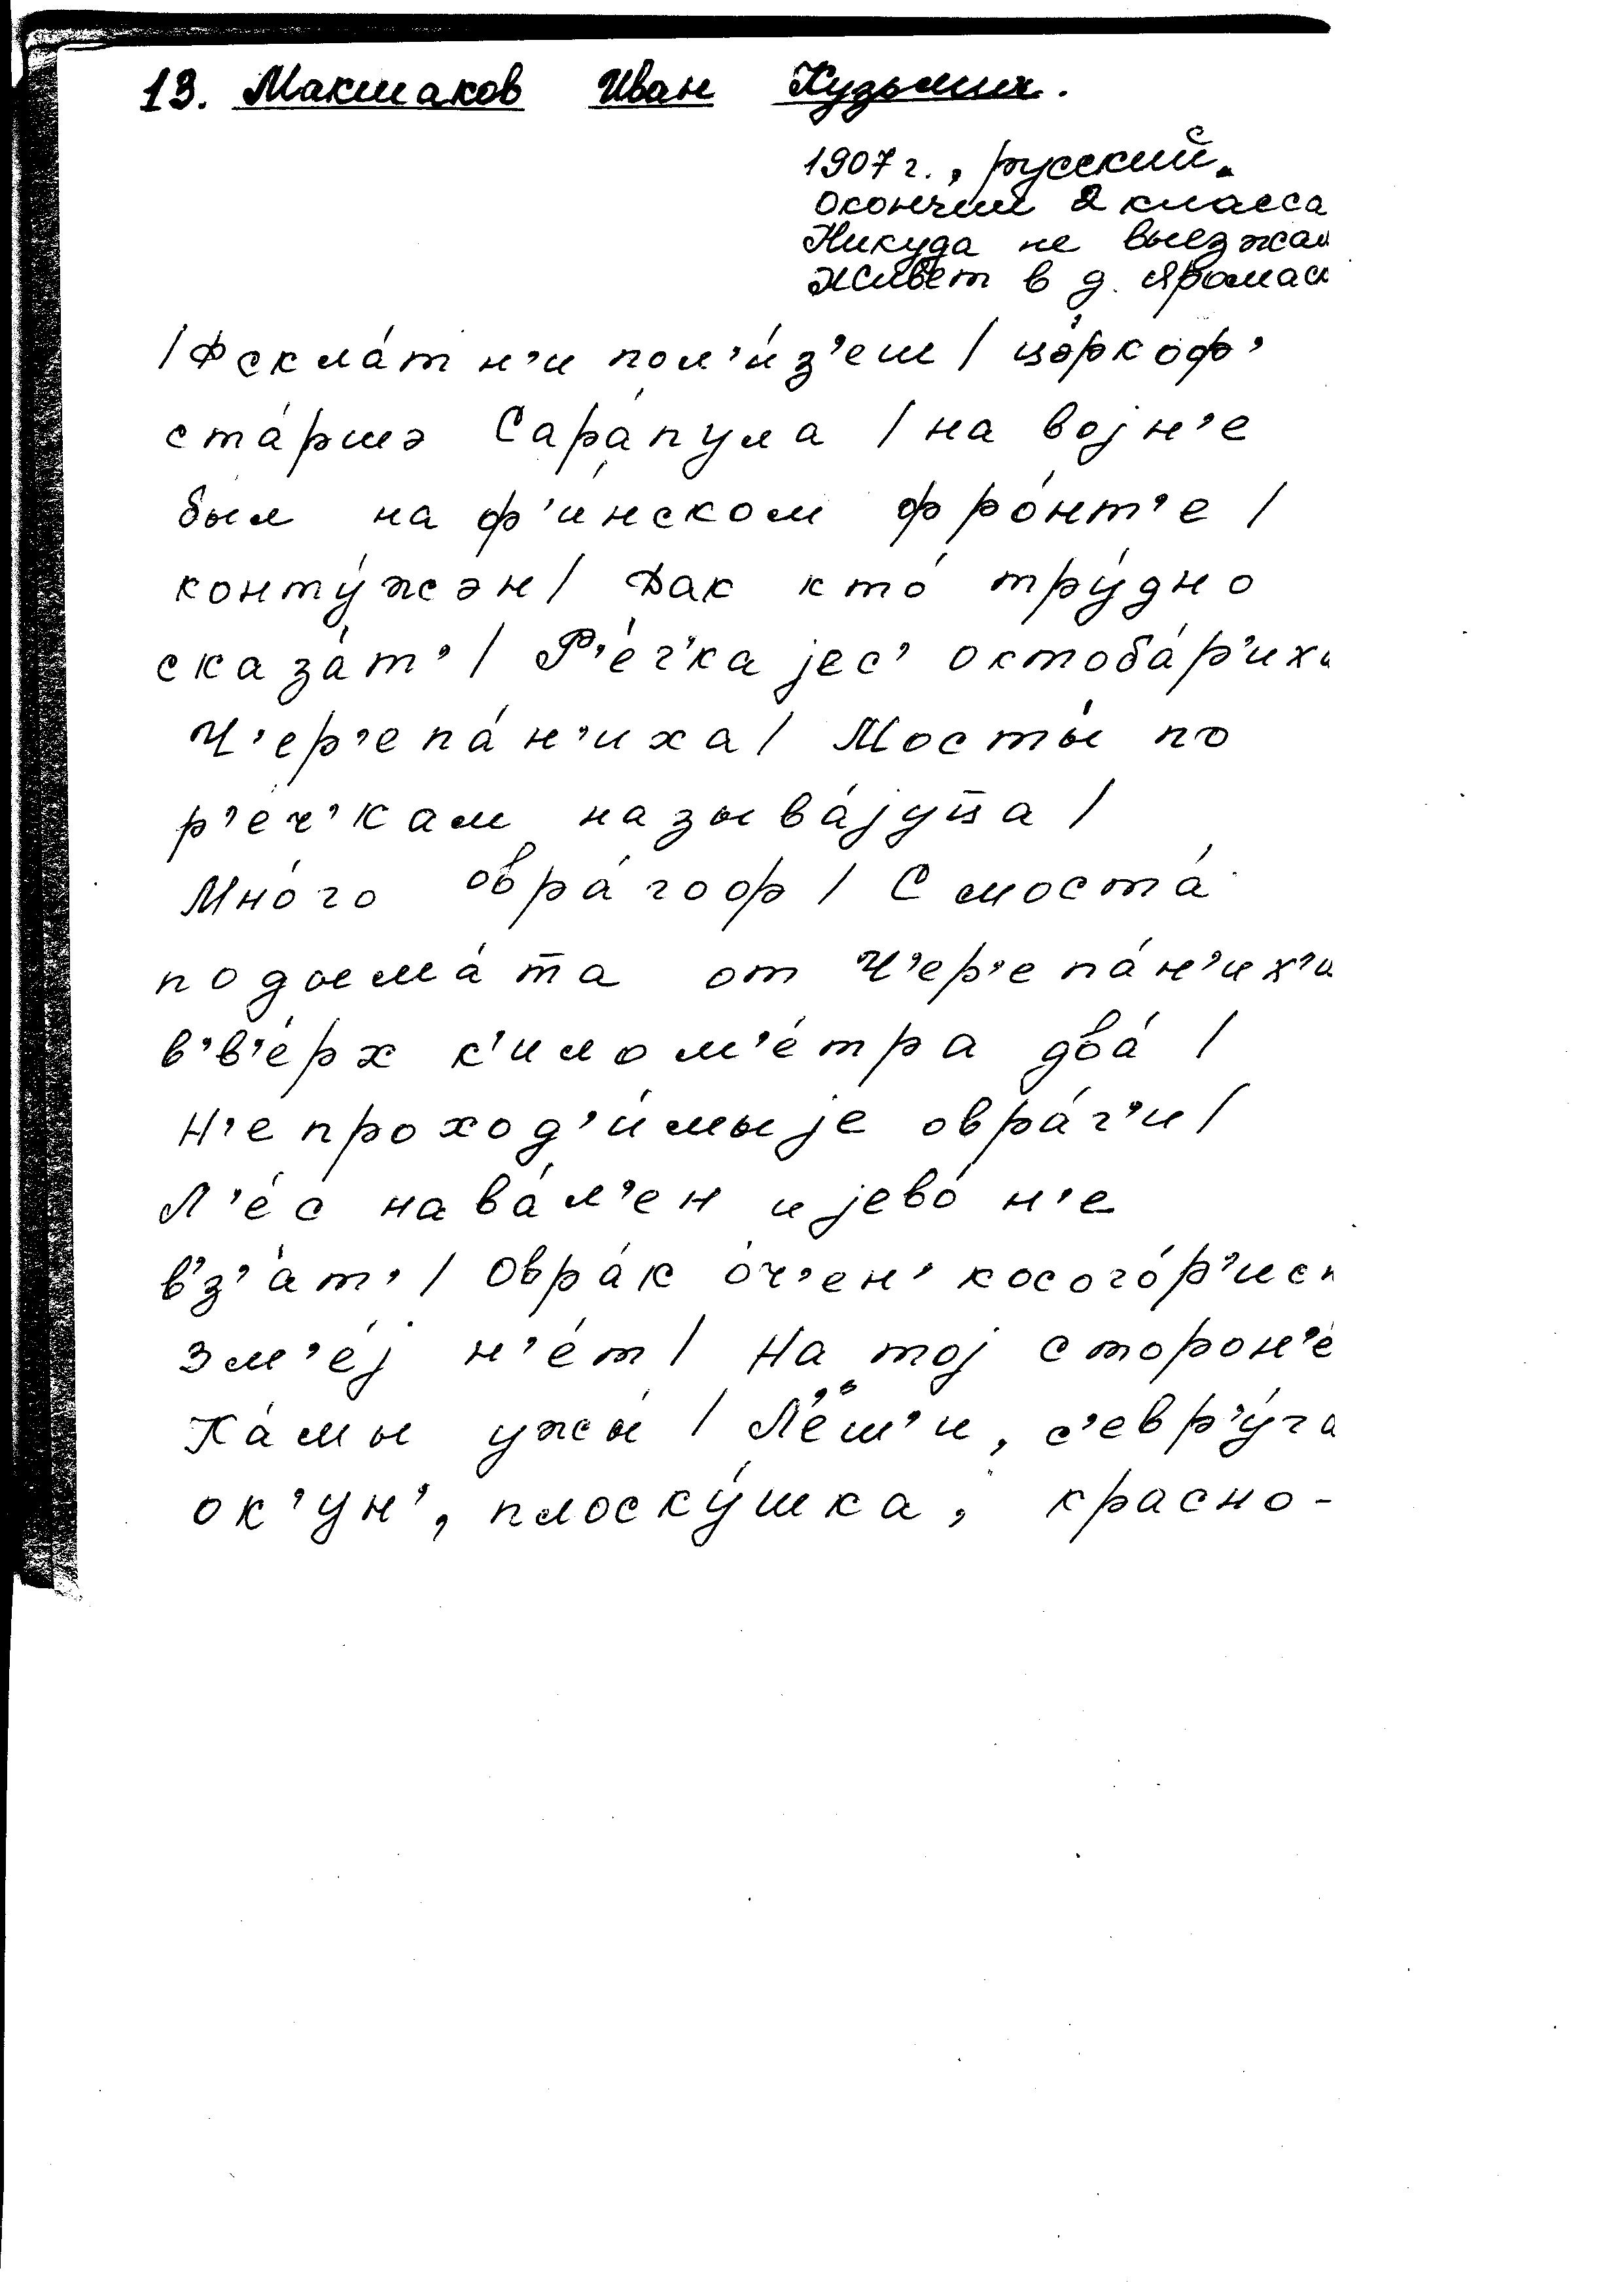 13. Макшаков Иван Кузьмич.
1907 г., русский.
Окончил 2 класса
Никуда не выезжал
Живет в д. Яромас
/ Фскла́т н'и пол'и́з'еш / цэ́ркоф'
ста́ршэ Сара́пула / на војн'е
был на ф'и́нском фро́нт'е /
конту́жэн / Дак кто́ тру́дно
сказа́т' / Р'е́ч'ка јес' октоба́р'иха
Ч'ер'епа́н'иха / Мосты́ по
р'еч'кам называ́јуц̄а /
Мно́го овра́гоф / С моста́
подыма́т̄а от Ч'ер'епа́н'их'и
в'в'е́рх к'илом'е́тра два́ /
Н'епроход'и́мыје овра́г'и /
Л'е́с нава́л'ен и јево́ н'е
в'з'а́т' / Овра́к о́ч'ен' косого́р'ист
Зм'е́ј н'е́т / На тој сторон'е́
Ка́мы ужы́ / Л'ёш'и, с'евр'у́га
ок'ун', плоску́шка, красно-